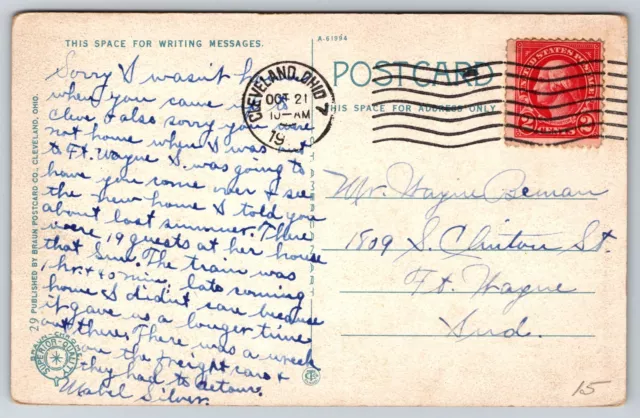 A-61994
THIS SPACE FOR WRITING MESSAGES.
POSTCARD
THIS SPACE FOR ADDRESS ONLY
Sorry I wasn't home
when you came in to
Cleve & also sorry you were
not home when I was out
to Ft. Wayne I was going to
have you come over & see
the new home I told you
about last summer. There
were 19 guests at her house
that Sun. The train was
1 hr. + 40 min. late coming
home I didn't care because
it gave us a longer time
out there. There was a wreck
on the freight cars &
they had to detour.
Mabel Silver.
CLEVELAND, OHIO 7
OCT 21
10-AM
19
UNITED STATES POSTAGE
2 CENTS 2
Mr. Wayne Beman
1809 S. Clinton St.
Ft. Wayne
Ind.
29 PUBLISHED BY BRAUN POSTCARD CO., CLEVELAND, OHIO.
SUPERIOR-QUALITY
15